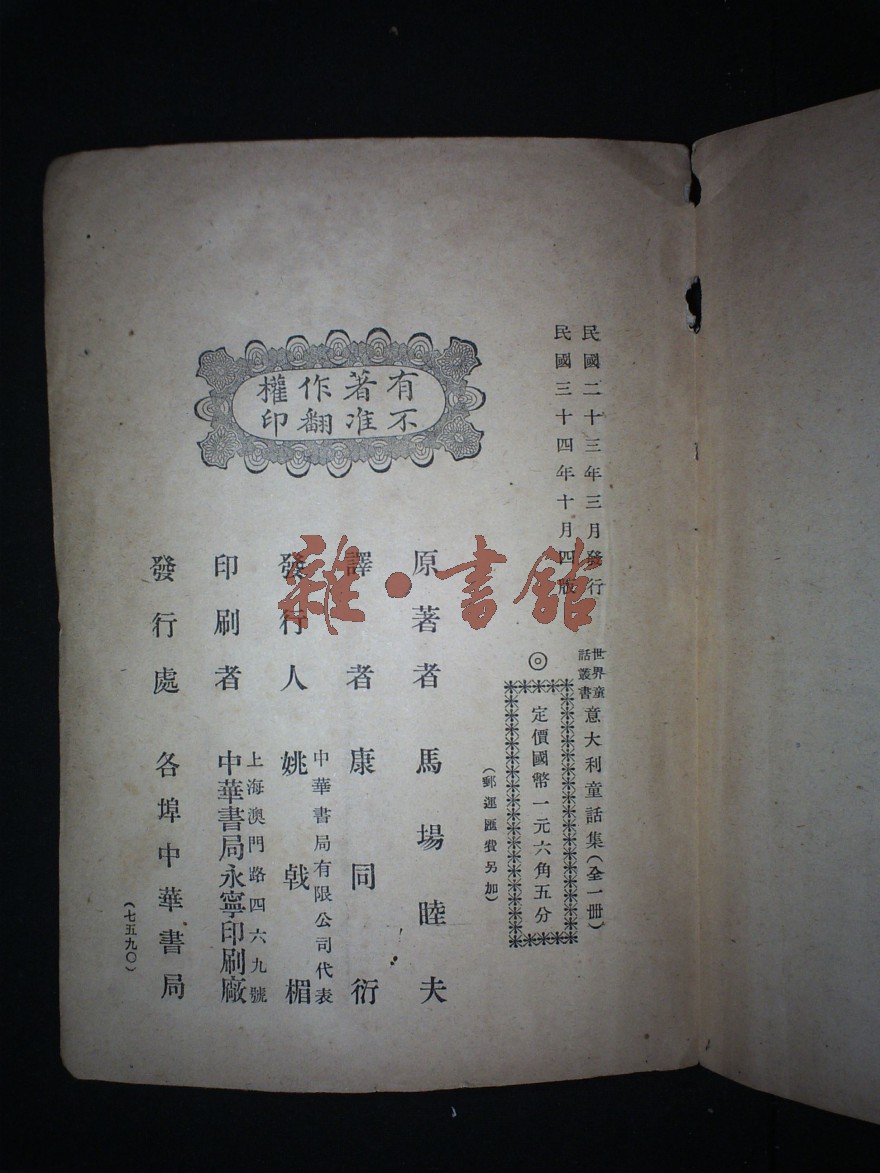 民國二十三年三月發行
民國三十四年十月四版
世界童話叢書
意大利童話集(全一冊)
◎
定價國幣一元六角五分
(郵運匯費另加)
有著作權
不准翻印
原著者 馬場睦夫
譯者 康同衍
中華書局有限公司代表
發行人 姚戟楣
上海澳門路四六九號
印刷者 中華書局永寧印刷廠
發行處 各埠中華書局
(七五九〇)
雜·書館